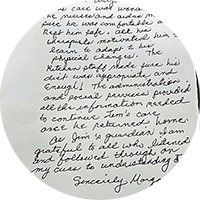 care was wond
he nurses and aides m
sure he was comfortable a
kept him safe. All his
therapists motivated him t
learn to adapt to his
physical changes. The
kitchen staff made sure his
diet was appropriate and
enough! The administration
and social services provided
all the information needed
to continue Jim's care
once he returned home.
As Jim's guardian I am
grateful to all who listened
and followed through on
my cues to understanding
Sincerely